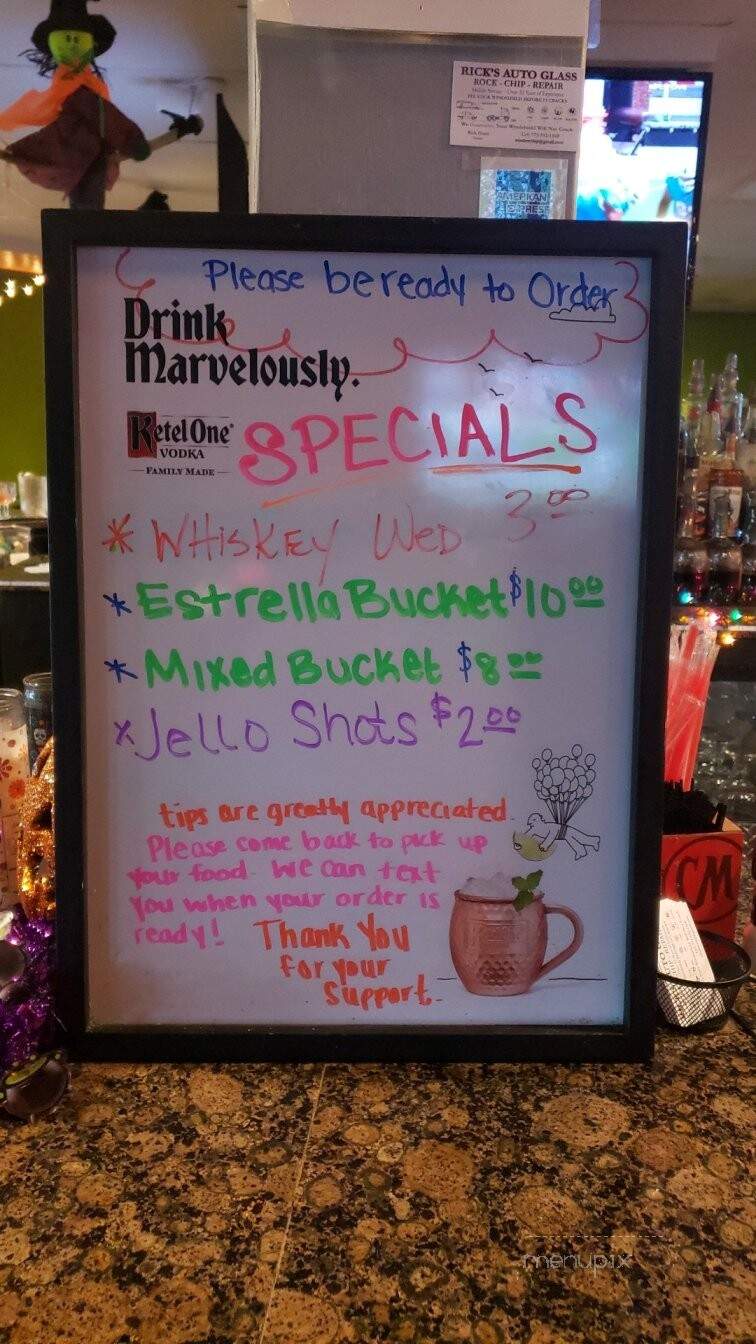 RICK'S AUTO GLASS
ROCK - CHIP - REPAIR
AMERICAN
EXPRESS
Please be ready to Order
Drink
Marvelously.
Ketel One®
VODKA
FAMILY MADE
SPECIALS
* WHISKEY WED 3.00
* Estrella Bucket $10.00
* Mixed Bucket $8.00
x Jello Shots $2.00
tips are greatly appreciated.
Please come back to pick up
your food. We can text
you when your order is
ready! Thank You
for your
Support.
CM
menupix